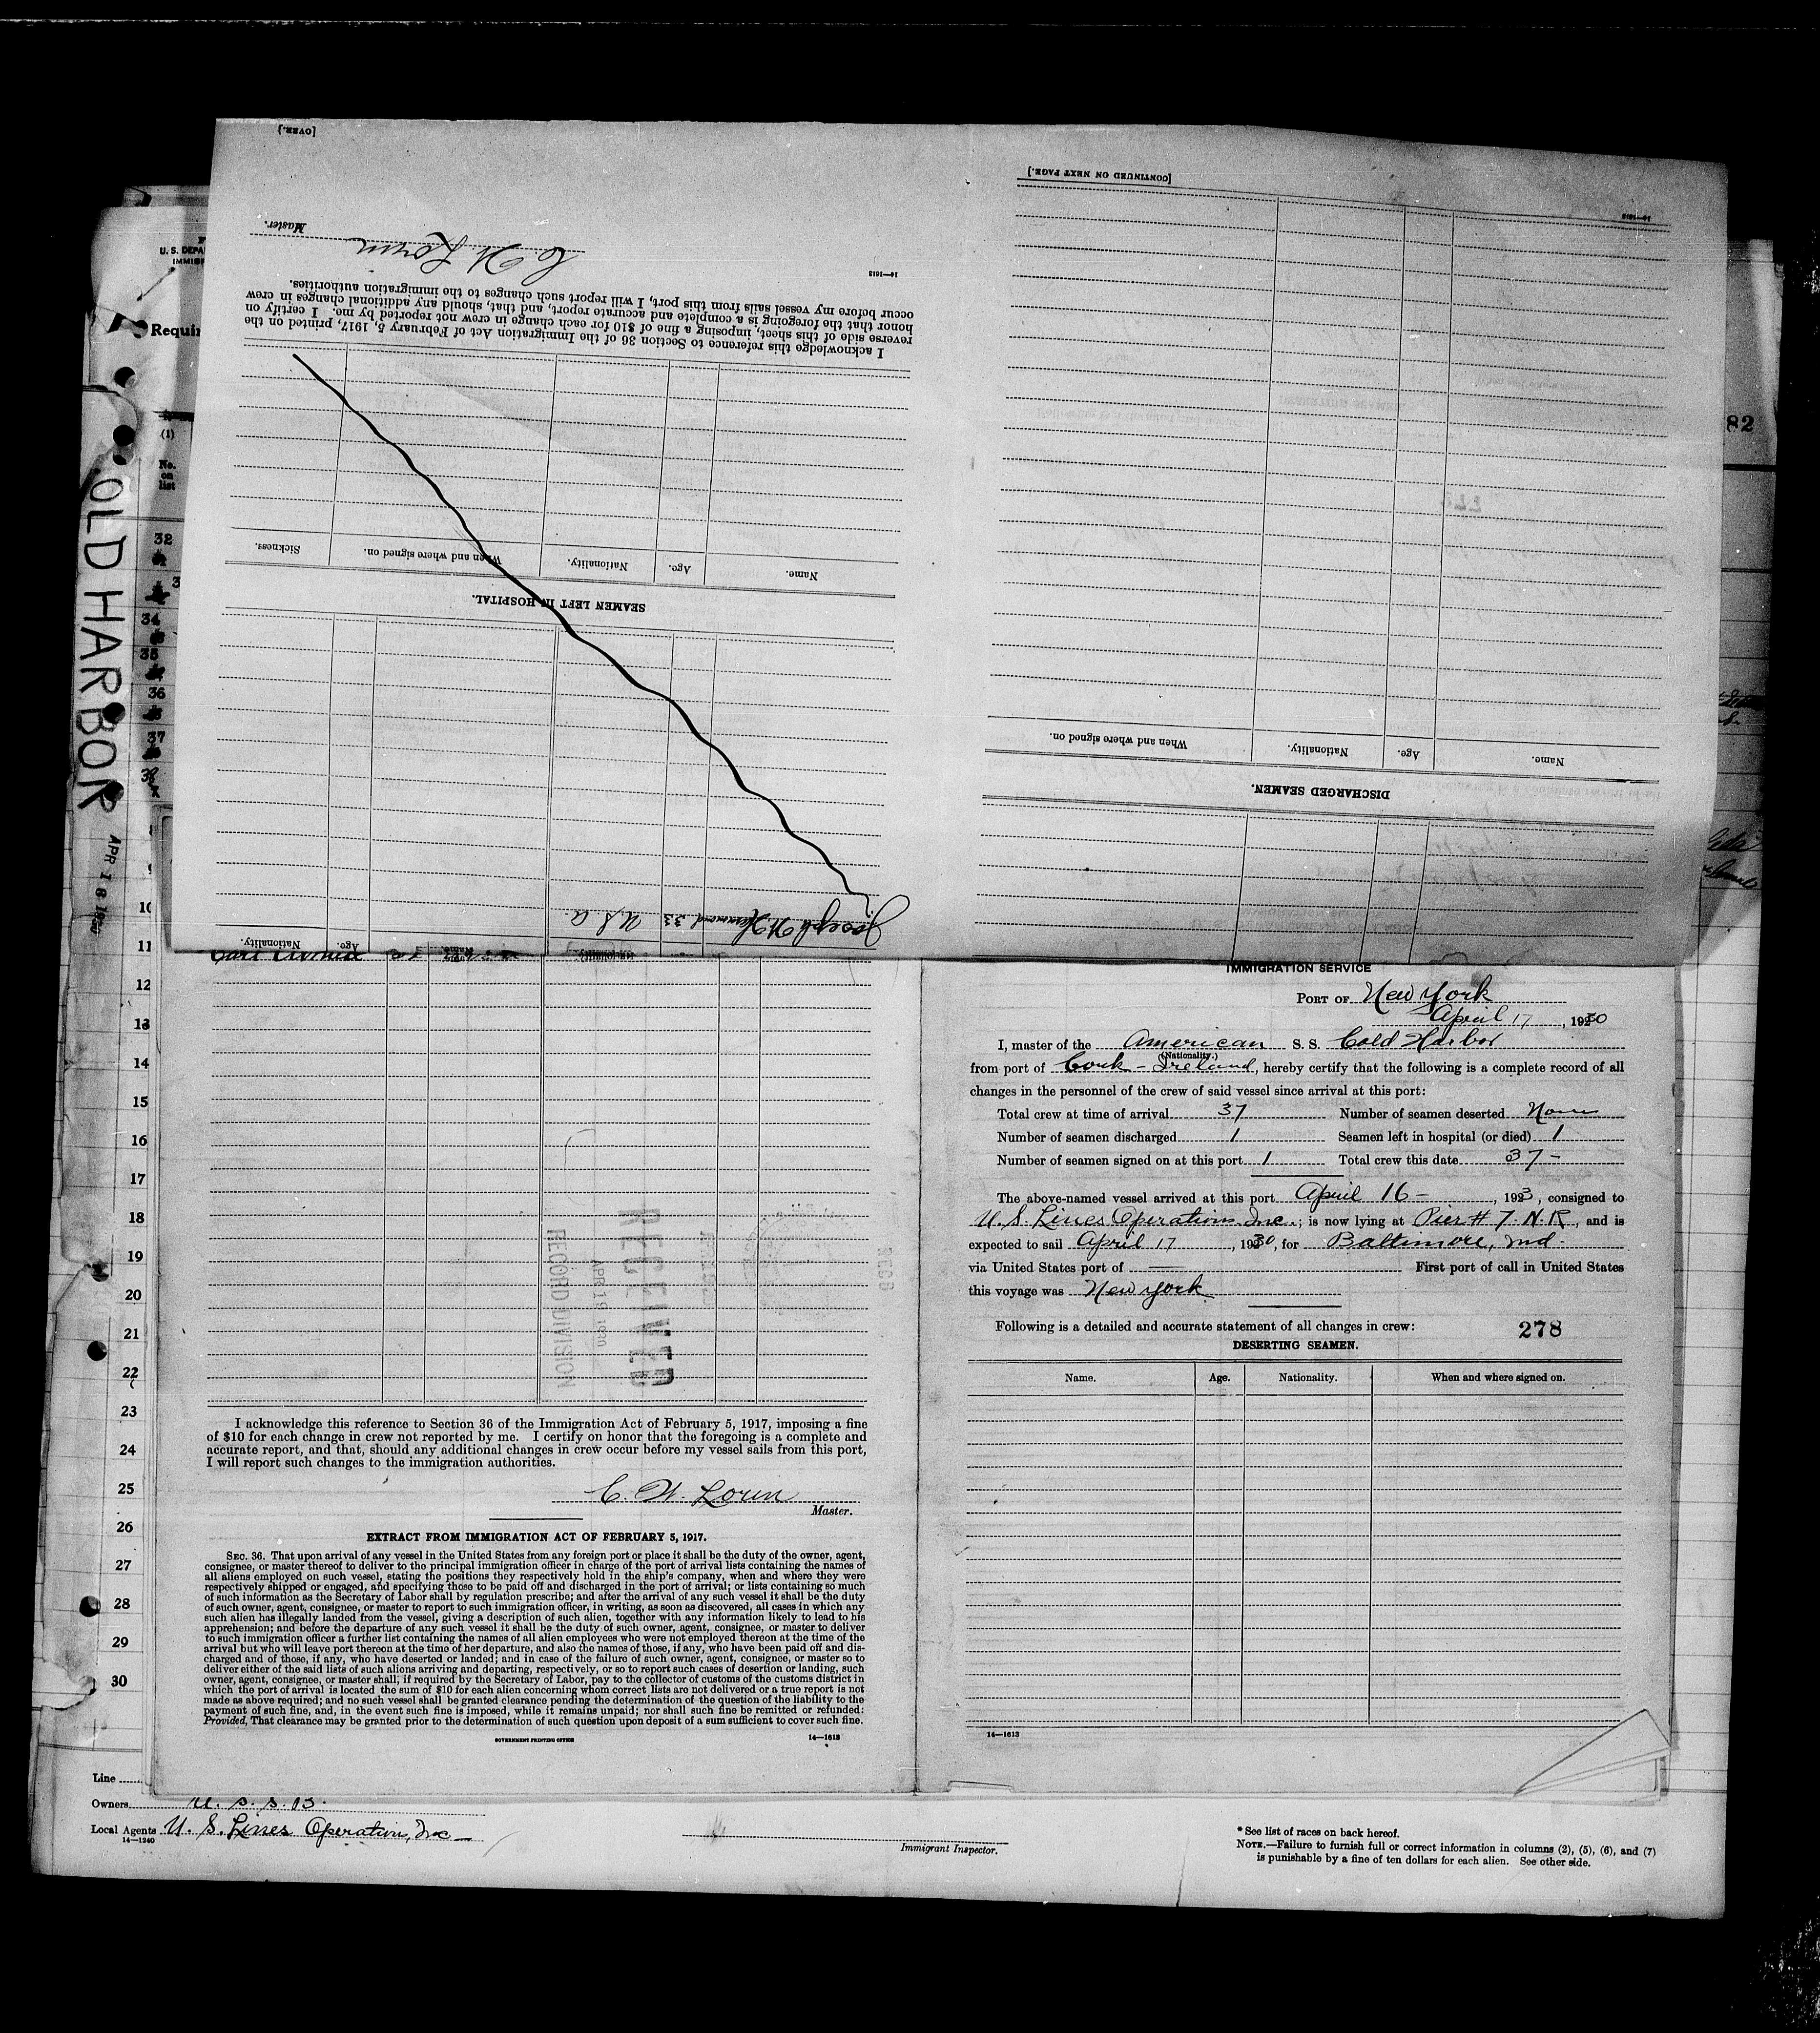 [OVER.]
Master.
C. W. Loren
14—1613
I acknowledge this reference to Section 36 of the Immigration Act of February 5, 1917, printed on the
reverse side of this sheet, imposing a fine of $10 for each change in crew not reported by me. I certify on
honor that the foregoing is a complete and accurate report, and that, should any additional changes in crew
occur before my vessel sails from this port, I will report such changes to the immigration authorities.
Name. Age. Nationality. When and where signed on. Sickness.
SEAMEN LEFT IN HOSPITAL.
Joseph W. 33 U S A
Age. Nationality.
[CONTINUED ON NEXT PAGE.]
14—1613
Name. Age. Nationality. When and where signed on.
DISCHARGED SEAMEN.
U. S. DEPA
IMMIG
Requir
(1)
No.
on
list
32
34
35
36
37
38
10
11
12
13
14
15
16
17
18
19
20
21
22
23
24
25
26
27
28
29
30
82
OLD HARBOR
APR 18 1930
Carl
RECEIVED
APR 19 1930
RECORD DIVISION
I acknowledge this reference to Section 36 of the Immigration Act of February 5, 1917, imposing a fine
of $10 for each change in crew not reported by me. I certify on honor that the foregoing is a complete and
accurate report, and that, should any additional changes in crew occur before my vessel sails from this port,
I will report such changes to the immigration authorities.
C. W. Loren
Master.
EXTRACT FROM IMMIGRATION ACT OF FEBRUARY 5, 1917.
SEC. 36. That upon arrival of any vessel in the United States from any foreign port or place it shall be the duty of the owner, agent,
consignee, or master thereof to deliver to the principal immigration officer in charge of the port of arrival lists containing the names of
all aliens employed on such vessel, stating the positions they respectively hold in the ship's company, when and where they were
respectively shipped or engaged, and specifying those to be paid off and discharged in the port of arrival; or lists containing so much
of such information as the Secretary of Labor shall by regulation prescribe; and after the arrival of any such vessel it shall be the duty
of such owner, agent, consignee, or master to report to such immigration officer, in writing, as soon as discovered, all cases in which any
such alien has illegally landed from the vessel, giving a description of such alien, together with any information likely to lead to his
apprehension; and before the departure of any such vessel it shall be the duty of such owner, agent, consignee, or master to deliver
to such immigration officer a further list containing the names of all alien employees who were not employed thereon at the time of the
arrival but who will leave port thereon at the time of her departure, and also the names of those, if any, who have been paid off and dis-
charged and of those, if any, who have deserted or landed; and in case of the failure of such owner, agent, consignee, or master so to
deliver either of the said lists of such aliens arriving and departing, respectively, or so to report such cases of desertion or landing, such
owner, agent, consignee, or master shall, if required by the Secretary of Labor, pay to the collector of customs of the customs district in
which the port of arrival is located the sum of $10 for each alien concerning whom correct lists are not delivered or a true report is not
made as above required; and no such vessel shall be granted clearance pending the determination of the question of the liability to the
payment of such fine, and, in the event such fine is imposed, while it remains unpaid; nor shall such fine be remitted or refunded:
Provided, That clearance may be granted prior to the determination of such question upon deposit of a sum sufficient to cover such fine.
GOVERNMENT PRINTING OFFICE 14—1613
IMMIGRATION SERVICE
PORT OF New York
April 17, 1930
I, master of the American S. S. Cold Harbor
(Nationality.)
from port of Cork - Ireland, hereby certify that the following is a complete record of all
changes in the personnel of the crew of said vessel since arrival at this port:
Total crew at time of arrival 37 Number of seamen deserted None
Number of seamen discharged 1 Seamen left in hospital (or died) 1
Number of seamen signed on at this port 1 Total crew this date 37 -
The above-named vessel arrived at this port April 16 -, 1923, consigned to
U. S. Lines Operations Inc.; is now lying at Pier # 7. N. R, and is
expected to sail April 17, 1930, for Baltimore, Md.
via United States port of — First port of call in United States
this voyage was New York
Following is a detailed and accurate statement of all changes in crew: 278
DESERTING SEAMEN.
Name. Age. Nationality. When and where signed on.
14—1613
Line
Owners U. S. S. B.
Local Agents U. S. Lines Operation, Inc —
14—1240
Immigrant Inspector.
* See list of races on back hereof.
NOTE.—Failure to furnish full or correct information in columns (2), (5), (6), and (7)
is punishable by a fine of ten dollars for each alien. See other side.